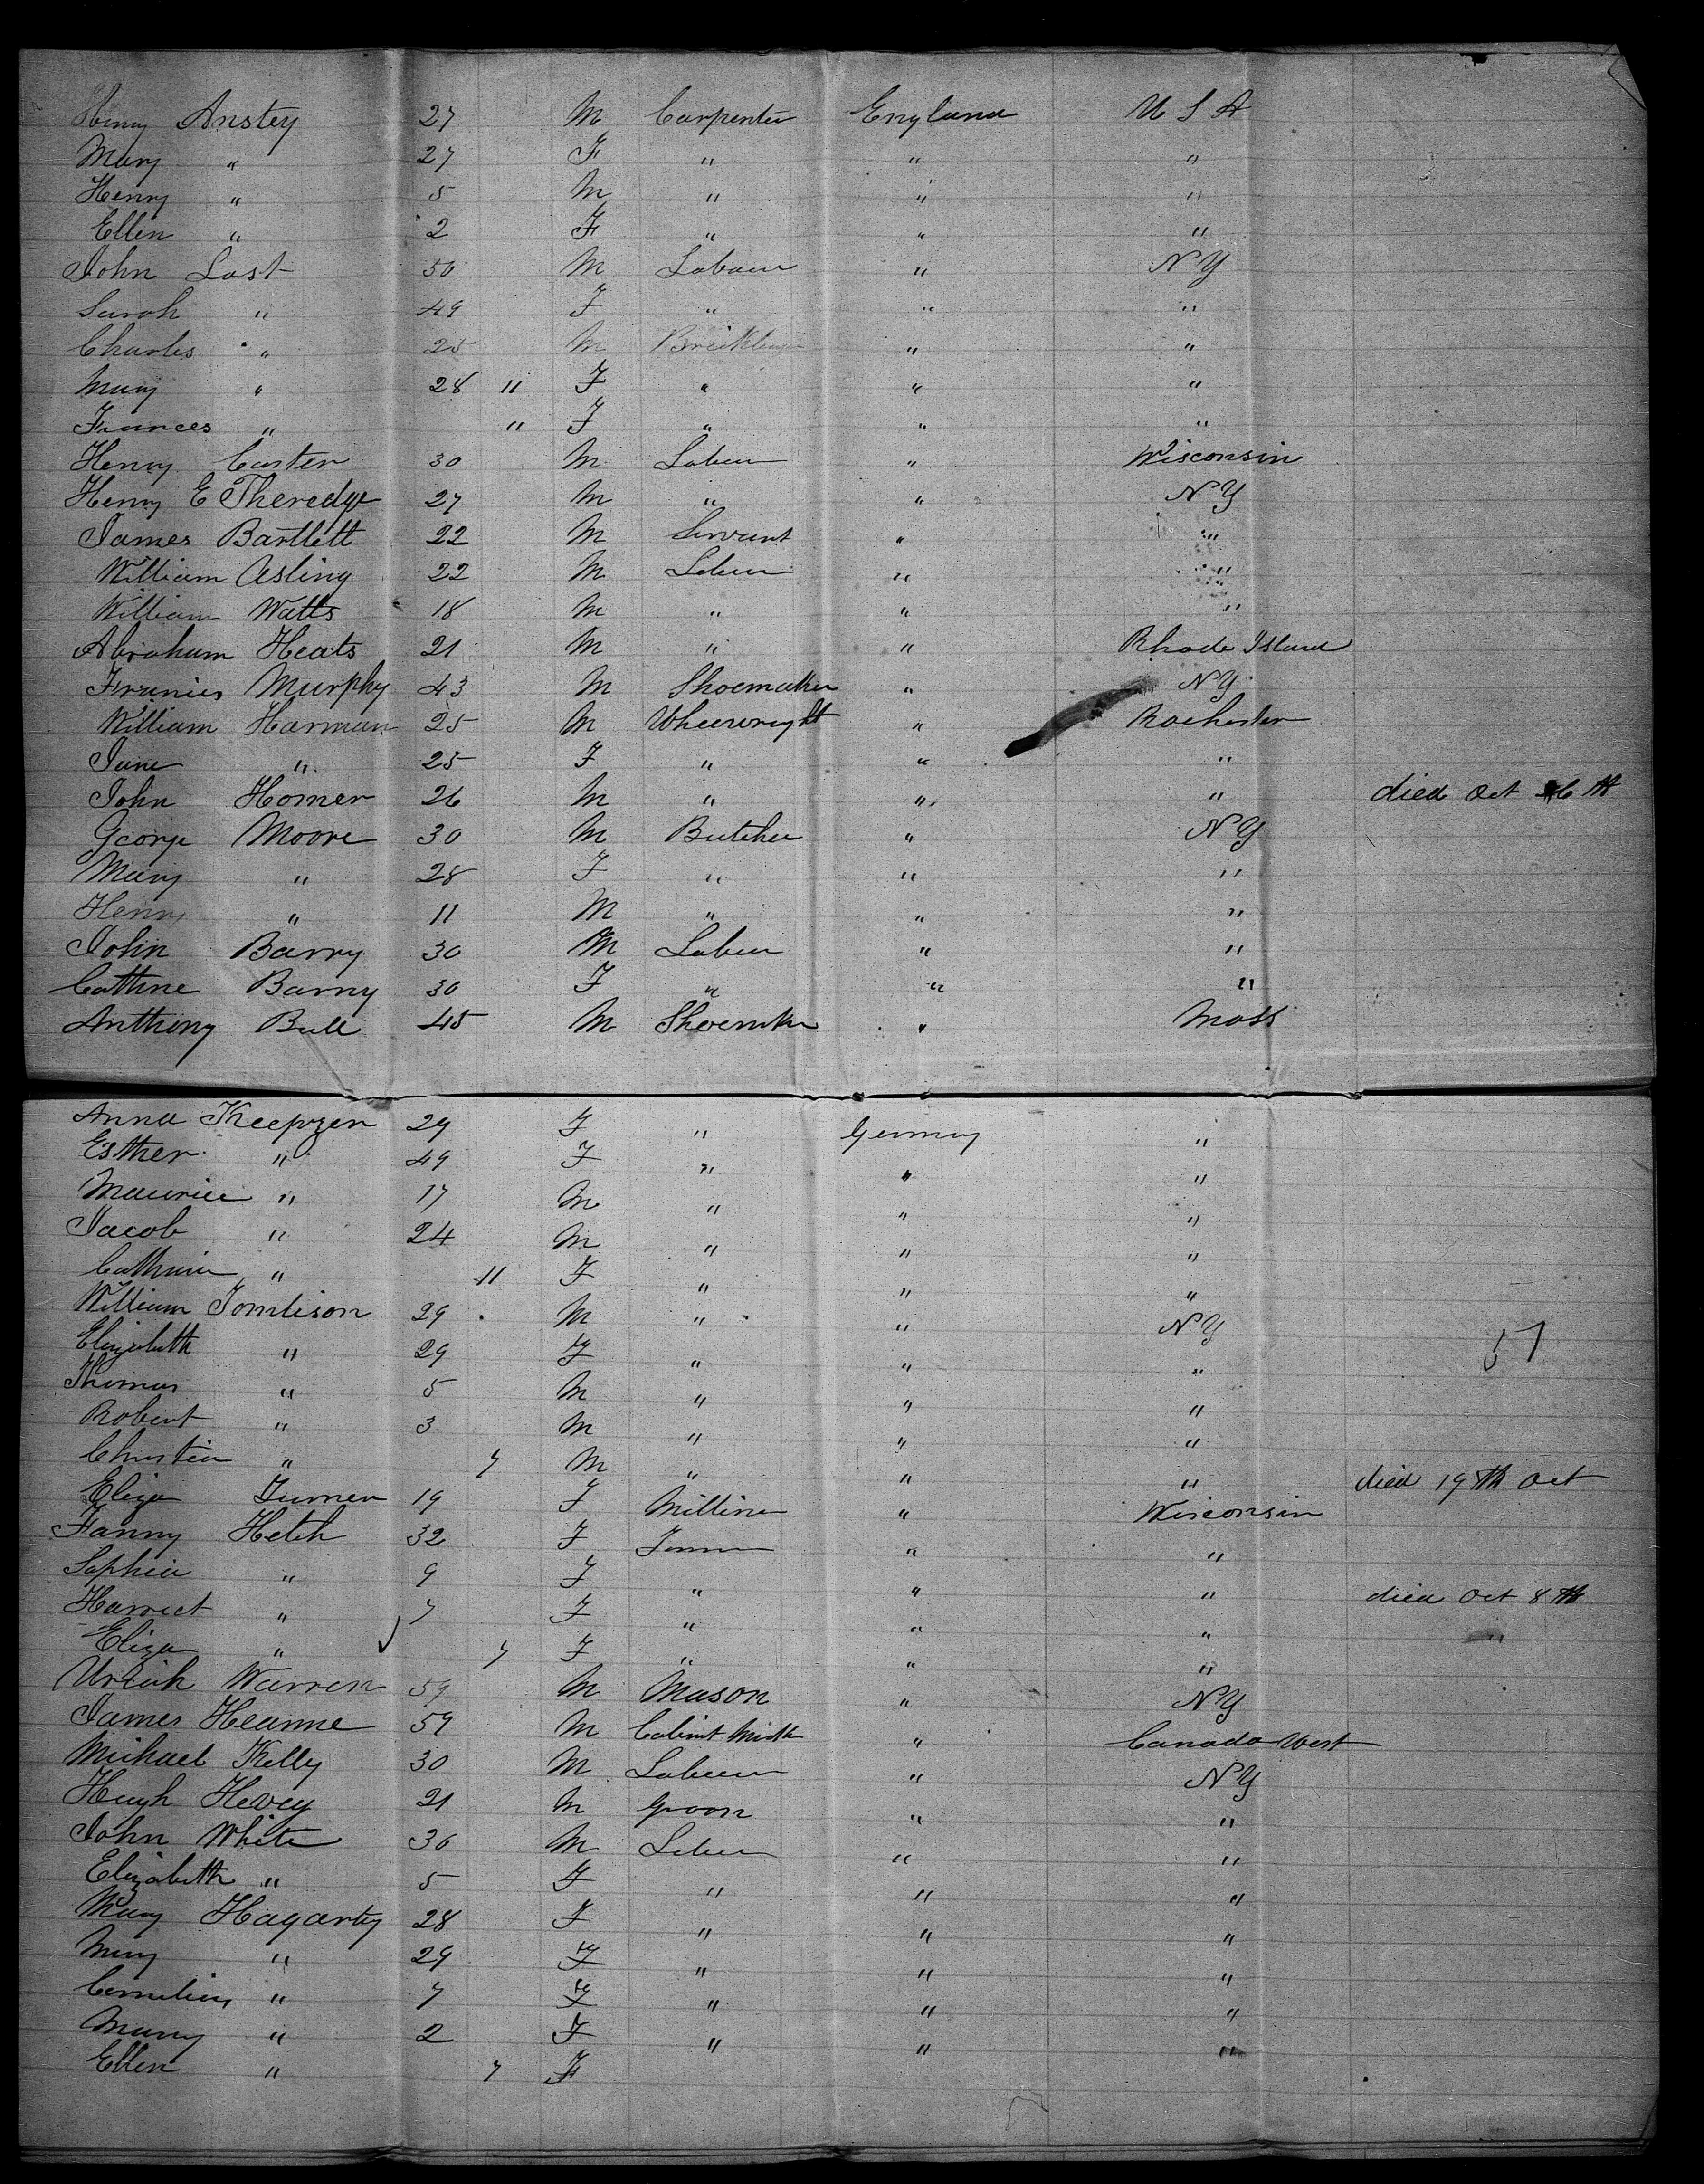 Henry Anstey 27 M Carpenter England U S A
Mary " 27 F " " "
Henry " 5 M " " "
Ellen " 2 F " " "
John Last 50 M Labour " N Y
Sarah " 49 F " " "
Charles " 25 M " "
Mary " 28 11 F " " "
Frances " 11 F " " "
Henry Carter 30 M Labour " Wisconsin
Henry E Theredge 27 M " " N Y
James Bartlett 22 M Servant " "
William Asling 22 M Labour " "
William Watts 18 M " " "
Abraham Heats 21 M " " Rhode Island
Francies Murphy 43 M Shoemaker " N Y
William Harman 25 M Wheewright " Rochester
Jane " 25 F " " "
John Homer 26 M " " " died Oct 6 th
George Moore 30 M Butcher " N Y
Mary " 28 F " " "
Henry " 11 M " " "
John Barry 30 M Labour " "
Cathne Barry 30 F " " "
Anthony Bull 45 M Shoemker " Mass
Anna Keepzen 29 F " Germany "
Esther " 49 F " " "
Maurice " 17 M " " "
Jacob " 24 M " " "
" 11 F " " "
William Tomlison 29 M " " N Y
Elizabeth " 29 F " " "
57
Thomas " 5 M " " "
Robert " 3 M " " "
Christian " 7 M " " " died 19 th Oct
Eliza Turner 19 F Milliner " Wisconsin
Fanny Hetch 32 F " "
Sophia " 9 F " " " died Oct 8 th
Harriet " 7 F " " " "
Eliza " 7 F " " "
Uriah Warren 59 M Mason " N Y
James Hearne 59 M Cabint " Canada West
Michael Kelly 30 M Labour " N Y
Hugh Hevey 21 M Groon " "
John White 36 M Labour " "
Elizabeth " 5 F " " "
Mary Hagarty 28 F " " "
Mary " 29 F " " "
Cornelius " 7 F " " "
Mary " 2 F " " "
Ellen " 7 F